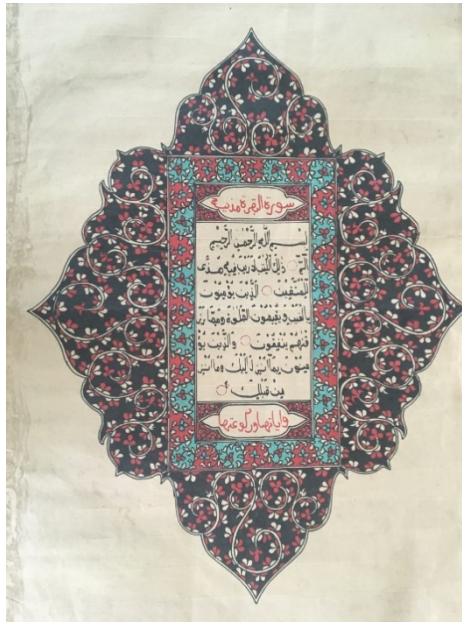 سورة البقرة مدنية
بسم الله الرحمن الرحيم
الم ذلك الكتب لا ريب فيه هدى
للمتقين الذين يؤمنون
بالغيب ويقيمون الصلوة ومما رز
قنهم ينفقون والذين يؤ
منون بما انزل اليك وما انزل
من قبلك
واياتها وركوعها